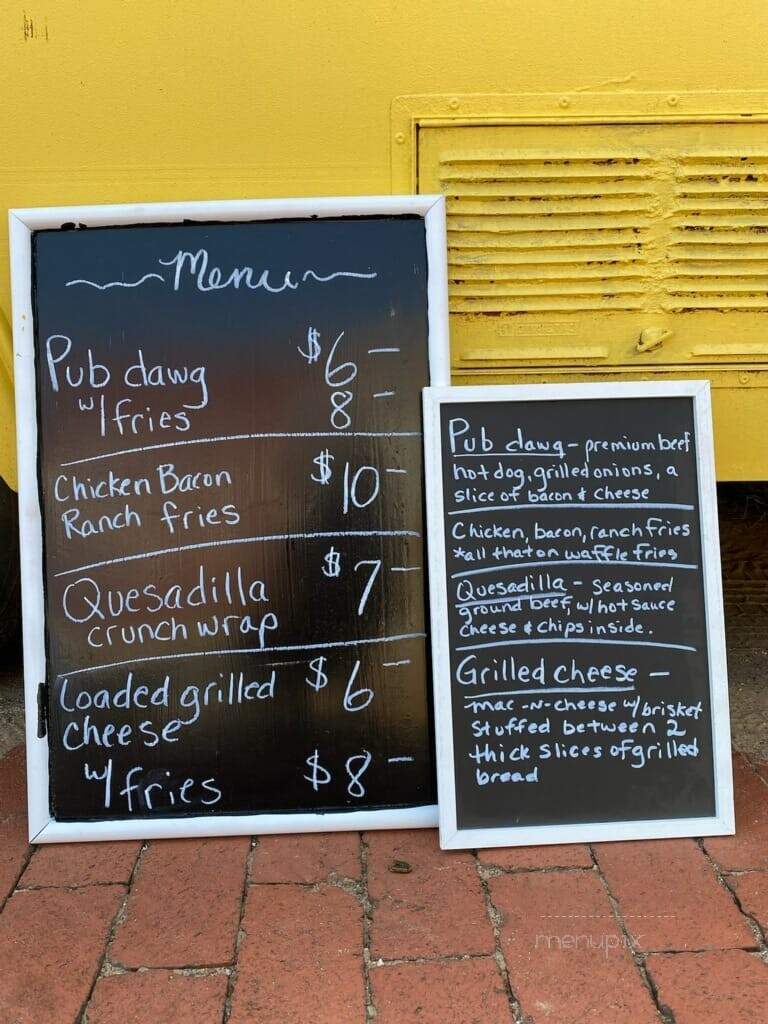 Menu
Pub dawg $6-
w/fries 8-
Chicken Bacon $10-
Ranch fries
Quesadilla $7-
crunch wrap
Loaded grilled $6-
cheese
w/fries $8-
Pub dawg - premium beef
hot dog, grilled onions, a
slice of bacon & cheese
Chicken, bacon, ranch fries
*all that on waffle fries
Quesadilla - seasoned
ground beef, w/hot sauce
cheese & chips inside.
Grilled cheese -
mac-n-cheese w/brisket
stuffed between 2
thick slices of grilled
bread
menupix